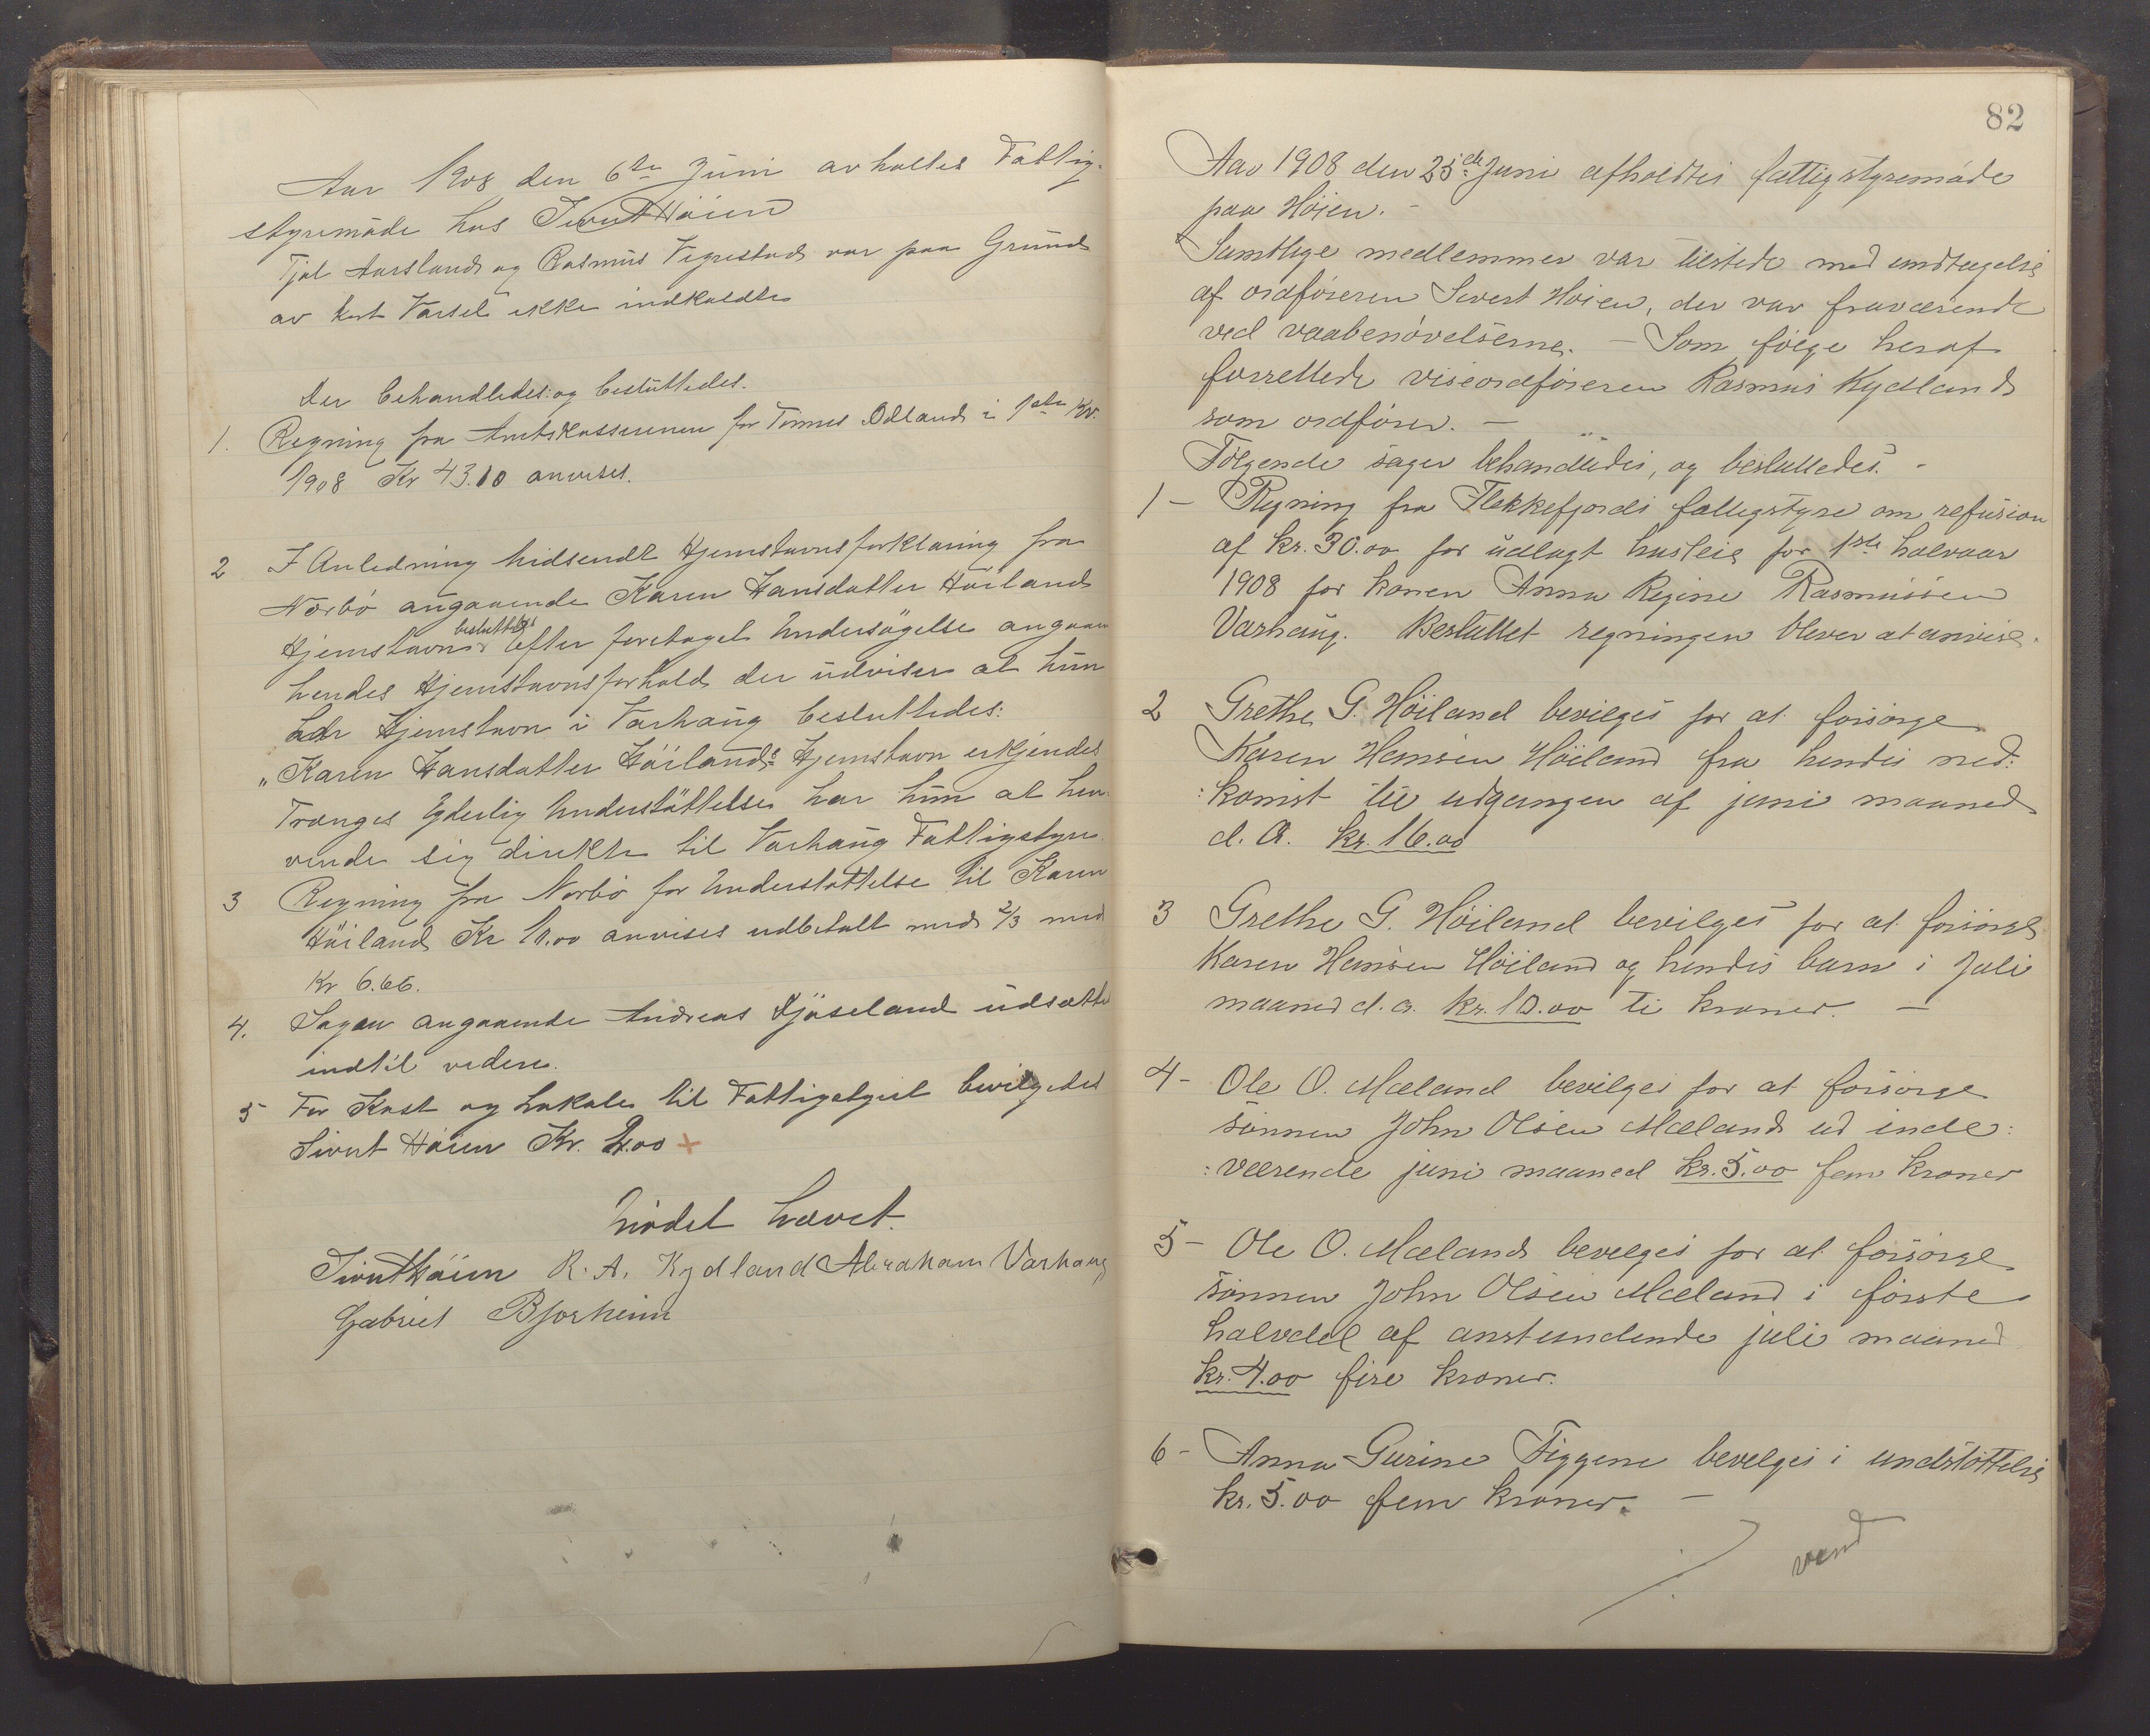 Aar 1908 den 6te Juni avholtes Fattig-
styremøde hos Sivert Høien
Tjøl Aarsland og Rasmus Vigrestad var paa Grund
av kort Varsel ikke indkaldte
Der behandledes og besluttedes.
1. Regning fra Amtskassereren for Tønnes Ødland i 1ste Kv.
1908 Kr 43.10 anvises.
2 I Anledning hidsendt Hjemstavnsforklaring fra
Nærbø angaaende Karen Hansdatter Høilands
besluttes
Hjemstavn Efter foretaget Undersøgelse angaaen
hendes Hjemstavnsforhold der udviser at hun
har Hjemstavn i Varhaug besluttedes:
"Karen Hansdatter Høilands Hjemstavn erkjendes
Trænges Yderlig Understøttelse har hun at hen-
vende sig direkte til Varhaug Fattigstyre.
3 Regning fra Nærbø for Understøttelse til Karen
Høiland Kr 10.00 anvises udbetalt med 2/3 med
Kr 6.66.
4. Sagen angaaende Andreas Kjøseland udsættes
indtil videre.
5 For Kost og Lokale til Fattigstyret bevilgedes
Sivert Høien Kr. 2.00 +
Mødet hævet.
Sivert Høien R. A. Kydland Abraham Varhaug
Gabriel Bjorheim
82
Aar 1908 den 25de Juni afholdtes fattigstyremøde
paa Høien. -
Samtlige medlemmer var tilstede med undtagelse
af ordføreren Sivert Høien, der var fraværende
ved vaabenøvelserne. - Som følge heraf
forrettede viseordføreren Rasmus Kydland
som ordfører. -
Følgende sager behandledes, og besluttedes. -
1 - Regning fra Flekkefjords fattigstyre om refusion
af kr. 30.00 for udlagt husleie for 1ste halvaar
1908 for konen Anna Regine Rasmussen
Varhaug. Besluttet regningen bliver at anvise.
2 Grethe G. Høiland bevilges for at forsørge
Karen Hansen Høiland fra hendes ned:
:komst til udgangen af juni maaned
d. A. kr. 16.00
3 Grethe G. Høiland bevilges for at forsørge
Karen Hansen Høiland og hendes barn i Juli
maaned d. a. kr. 10.00 ti kroner. -
4 - Ole O. Mæland bevilges for at forsørge
sønnen John Olsen Mæland ud inde:
:værende juni maaned kr. 5.00 fem kroner
5 - Ole O. Mæland bevilges for at forsørge
sønnen John Olsen Mæland i første
halvdel af anstundende juli maaned
kr. 4.00 fire kroner.
6 - Anna Gurine Tiggene bevilges i understøttelse
kr. 5.00 fem kroner. -
vend